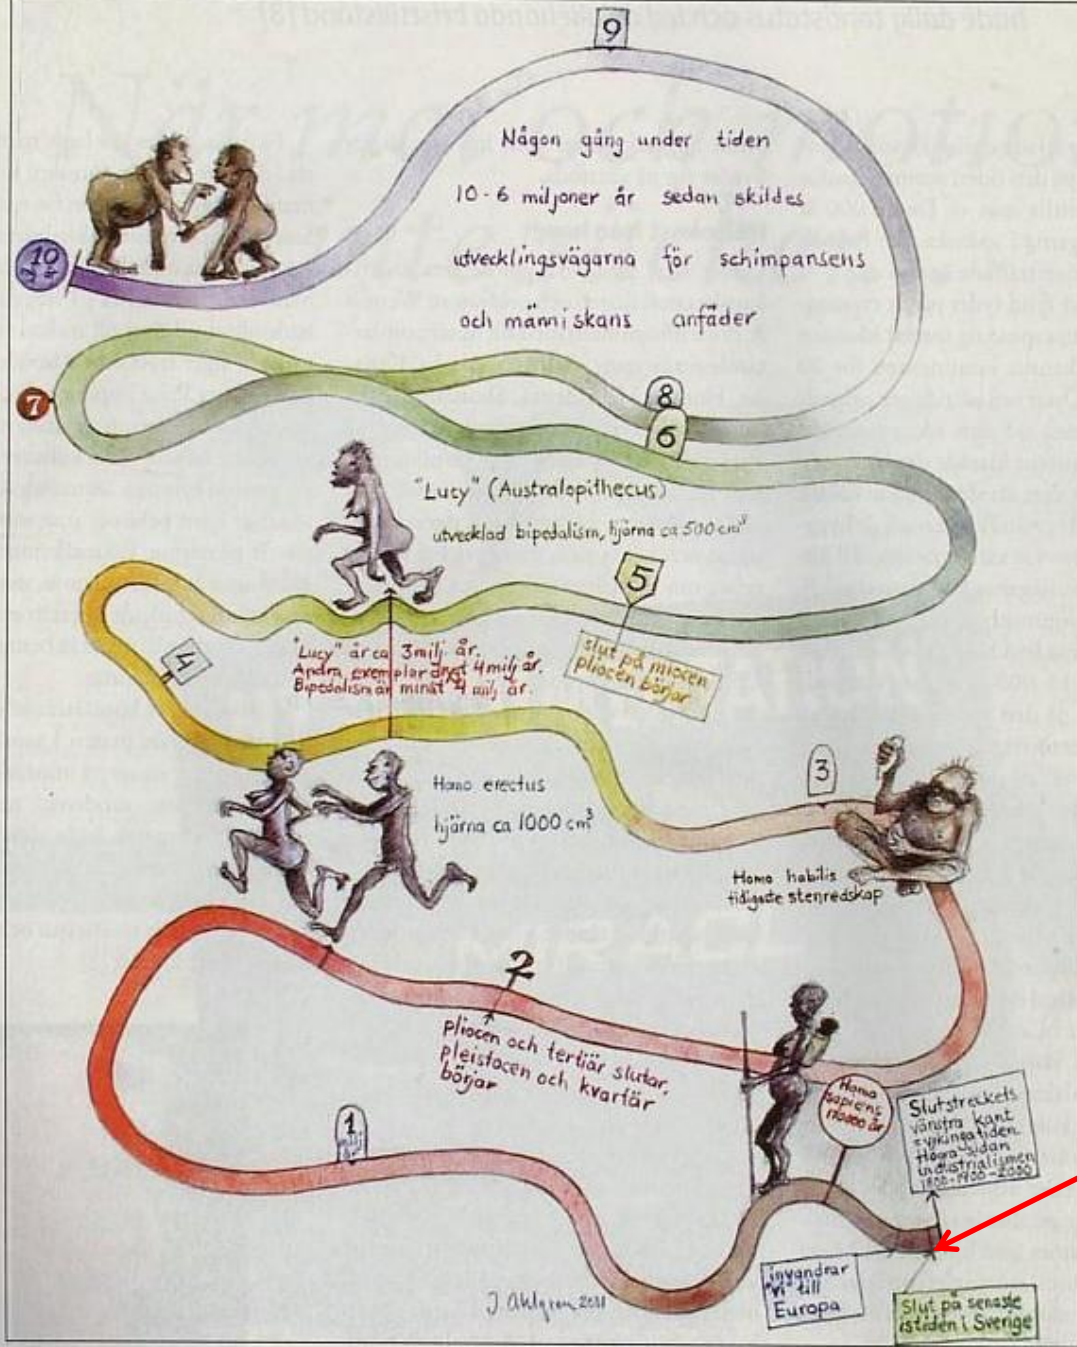 9
Någon gång under tiden
10-6 miljoner år sedan skildes
utvecklingsvägarna för schimpansens
och människans anfäder
10
7
8
6
"Lucy" (Australopithecus)
utvecklad bipedalism, hjärna ca 500 cm³
5
slut på miocen
pliocen börjar
"Lucy" är ca 3milj år.
Andra exemplar drygt 4 milj år.
Bipedalism är minst 4 milj år.
4
Homo erectus
hjärna ca 1000 cm³
3
Homo habilis
tidigaste stenredskap
2
pliocen och tertiär slutar,
pleistocen och kvartär
börjar
1
milj
år
Homo
sapiens
170000 år
Slutstreckets
vänstra kant
vikingatiden
Högra sidan
industrialismen
1800-1900-2000
invandrar
"vi" till
Europa
Slut på senaste
istiden i Sverige
J. Ahlgren 2011